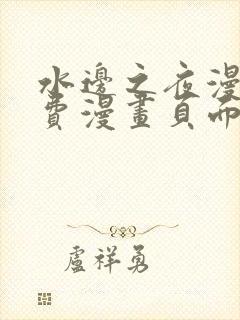 水邊之夜漫
費漫畫頁而
盧祥勇